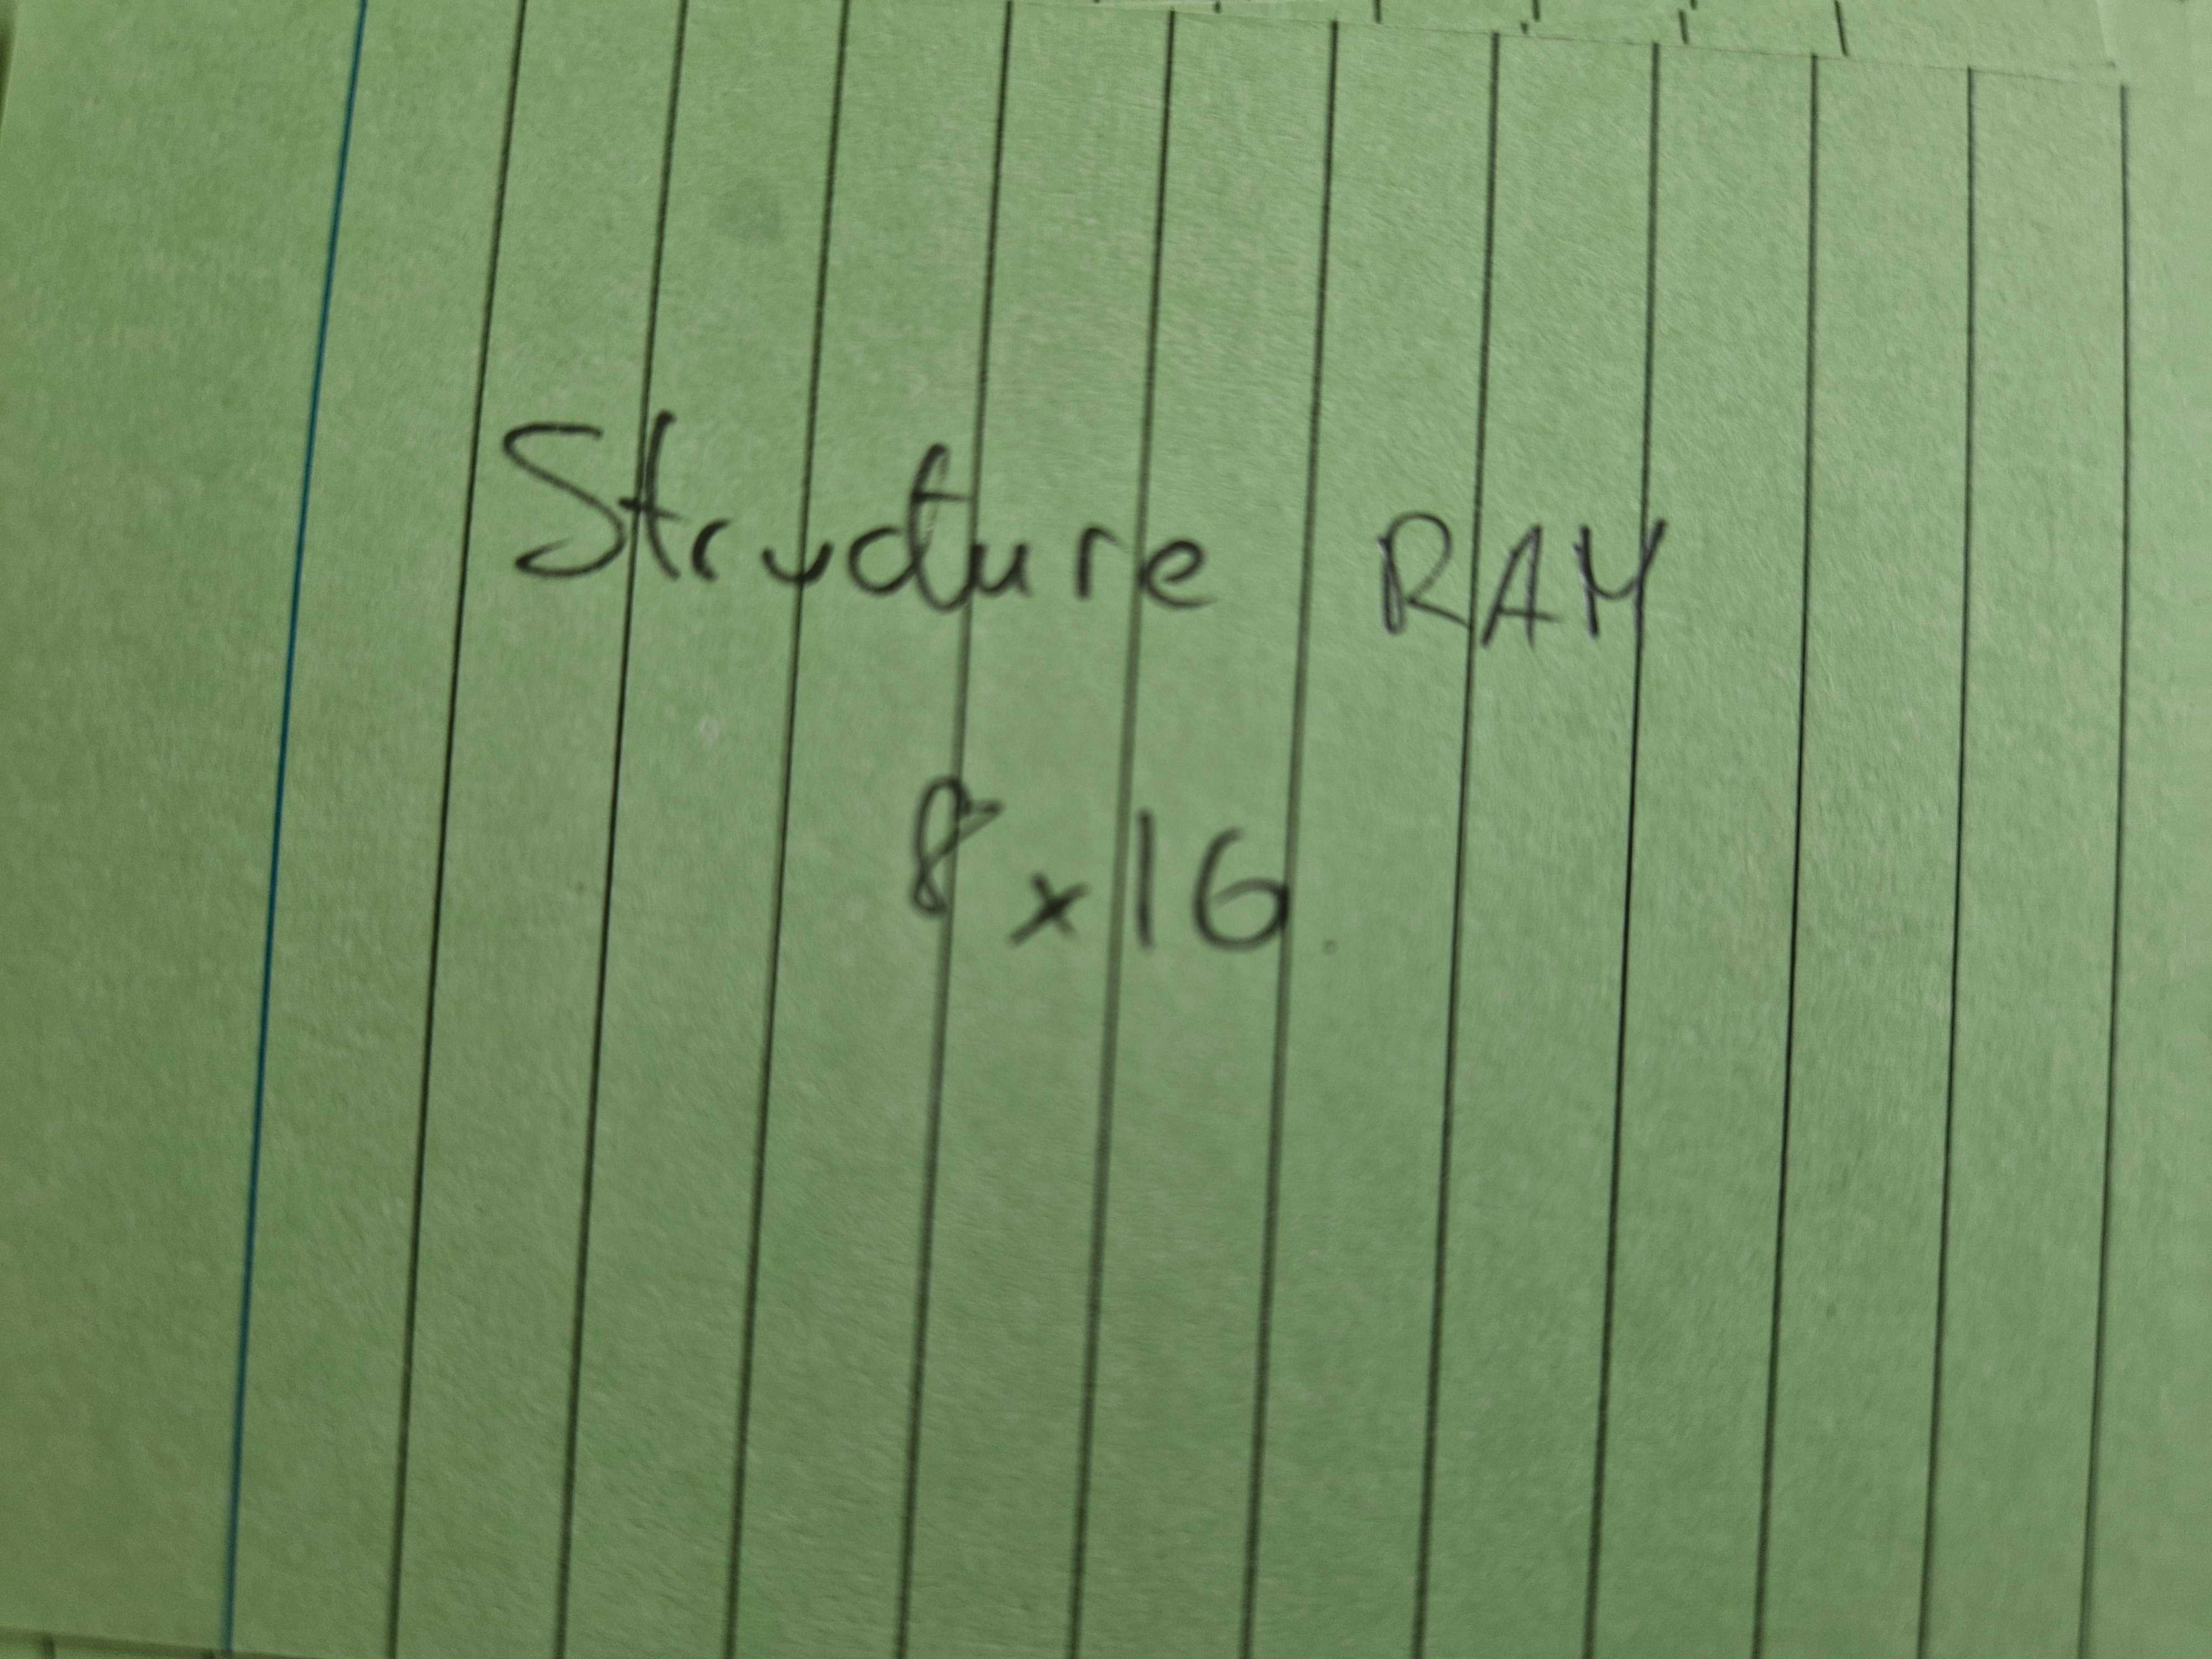 Structure RAM
8x16